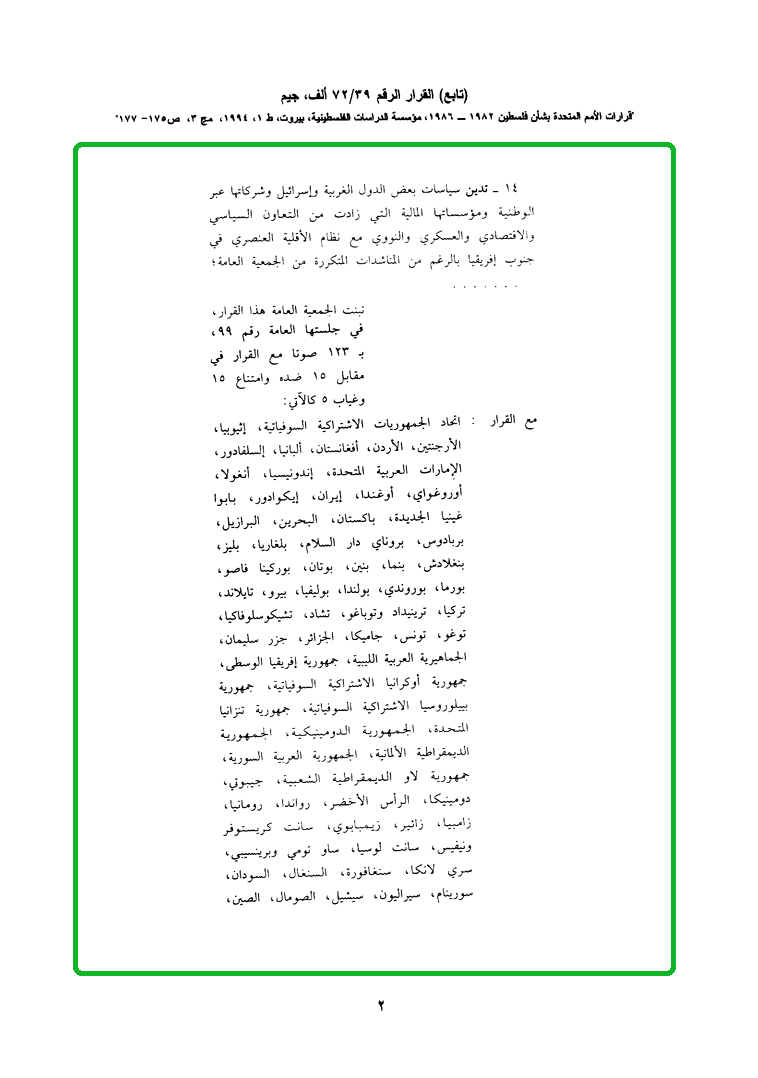 (تابع) القرار الرقم ٧٢/٣٩ ألف، جيم
"قرارات الأمم المتحدة بشأن فلسطين ١٩٨٢ ــ ١٩٨٦، مؤسسة الدراسات الفلسطينية، بيروت، ط ١، ١٩٩٤، مج ٣، ص١٧٥- ١٧٧"
١٤ ـ تدين سياسات بعض الدول الغربية وإسرائيل وشركاتها عبر
الوطنية ومؤسساتها المالية التي زادت من التعاون السياسي
والاقتصادي والعسكري والنووي مع نظام الأقلية العنصري في
جنوب إفريقيا بالرغم من المناشدات المتكررة من الجمعية العامة؛
. . . . . . .
تبنت الجمعية العامة هذا القرار،
في جلستها العامة رقم ٩٩،
بـ ١٢٣ صوتا مع القرار في
مقابل ١٥ ضده وامتناع ١٥
وغياب ٥ كالآتي:
مع القرار : اتحاد الجمهوريات الاشتراكية السوفياتية، إثيوبيا،
الأرجنتين، الأردن، أفغانستان، ألبانيا، إلسلفادور،
الإمارات العربية المتحدة، إندونيسيا، أنغولا،
أوروغواي، أوغندا، إيران، إيكوادور، بابوا
غينيا الجديدة، باكستان، البحرين، البرازيل،
بربادوس، بروناي دار السلام، بلغاريا، بليز،
بنغلادش، بنما، بنين، بوتان، بوركينا فاصو،
بورما، بوروندي، بولندا، بوليفيا، بيرو، تايلاند،
تركيا، ترينيداد وتوباغو، تشاد، تشيكوسلوفاكيا،
توغو، تونس، جاميكا، الجزائر، جزر سليمان،
الجماهيرية العربية الليبية، جمهورية إفريقيا الوسطى،
جمهورية أوكرانيا الاشتراكية السوفياتية، جمهورية
بييلوروسيا الاشتراكية السوفياتية، جمهورية تنزانيا
المتحدة، الجمهورية الدومينيكية، الجمهورية
الديمقراطية الألمانية، الجمهورية العربية السورية،
جمهورية لاو الديمقراطية الشعبية، جيبوتي،
دومينيكا، الرأس الأخضر، رواندا، رومانيا،
زامبيا، زائير، زيمبابوي، سانت كريستوفر
ونيفيس، سانت لوسيا، ساو تومي وبرينسيبي،
سري لانكا، سنغافورة، السنغال، السودان،
سورينام، سيراليون، سيشيل، الصومال، الصين،
٢